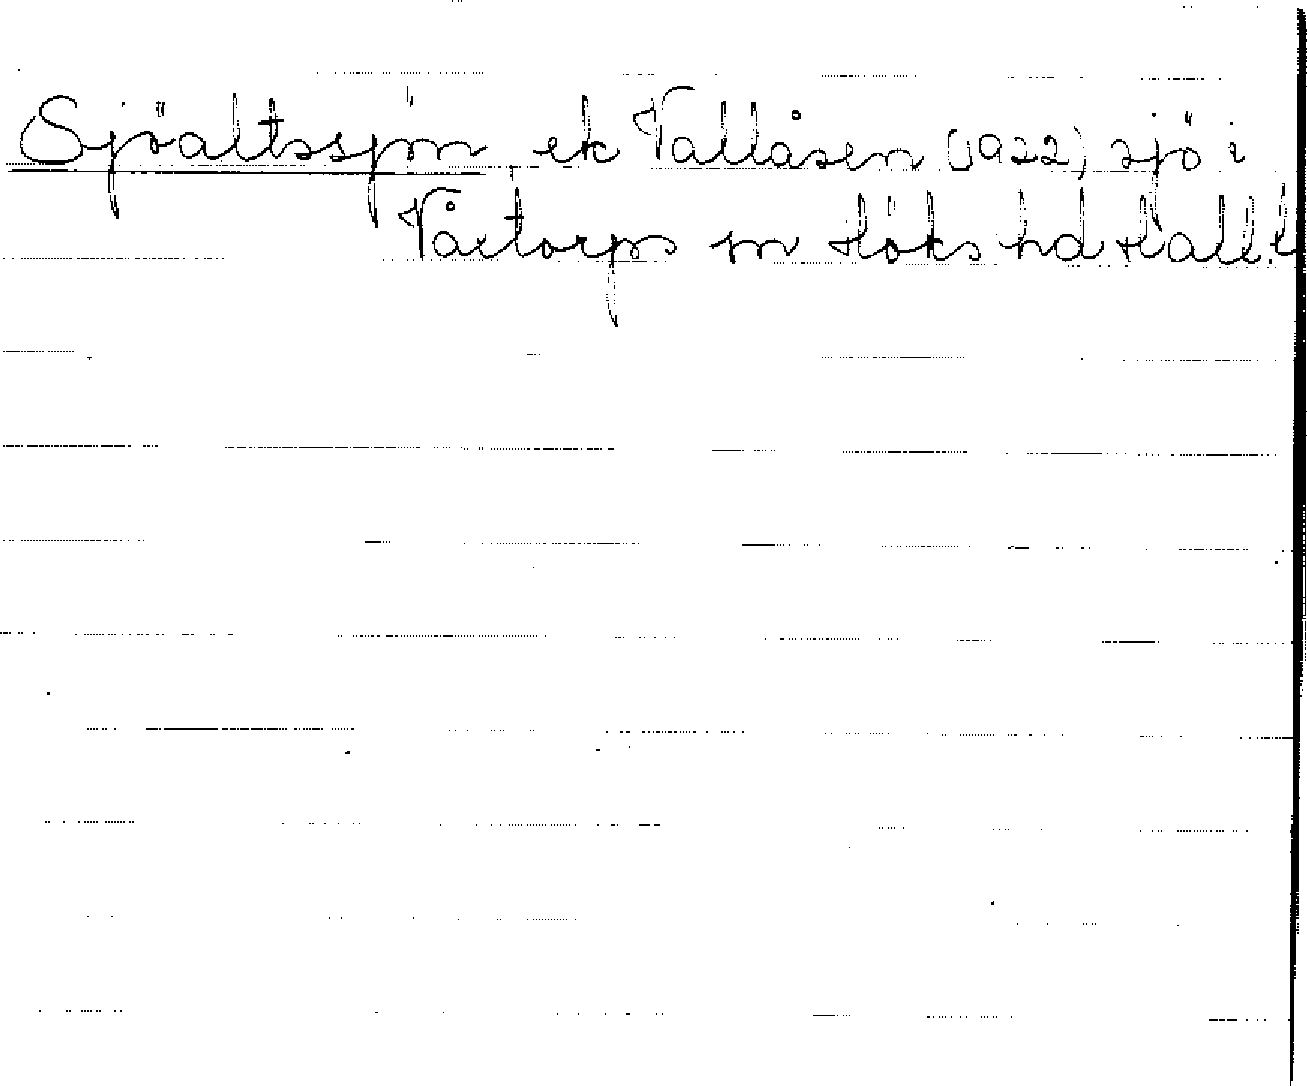 Sjöaltssjön ek Vallåsen (1922) sjö i
Våxtorps sn Höks hd Hall.l